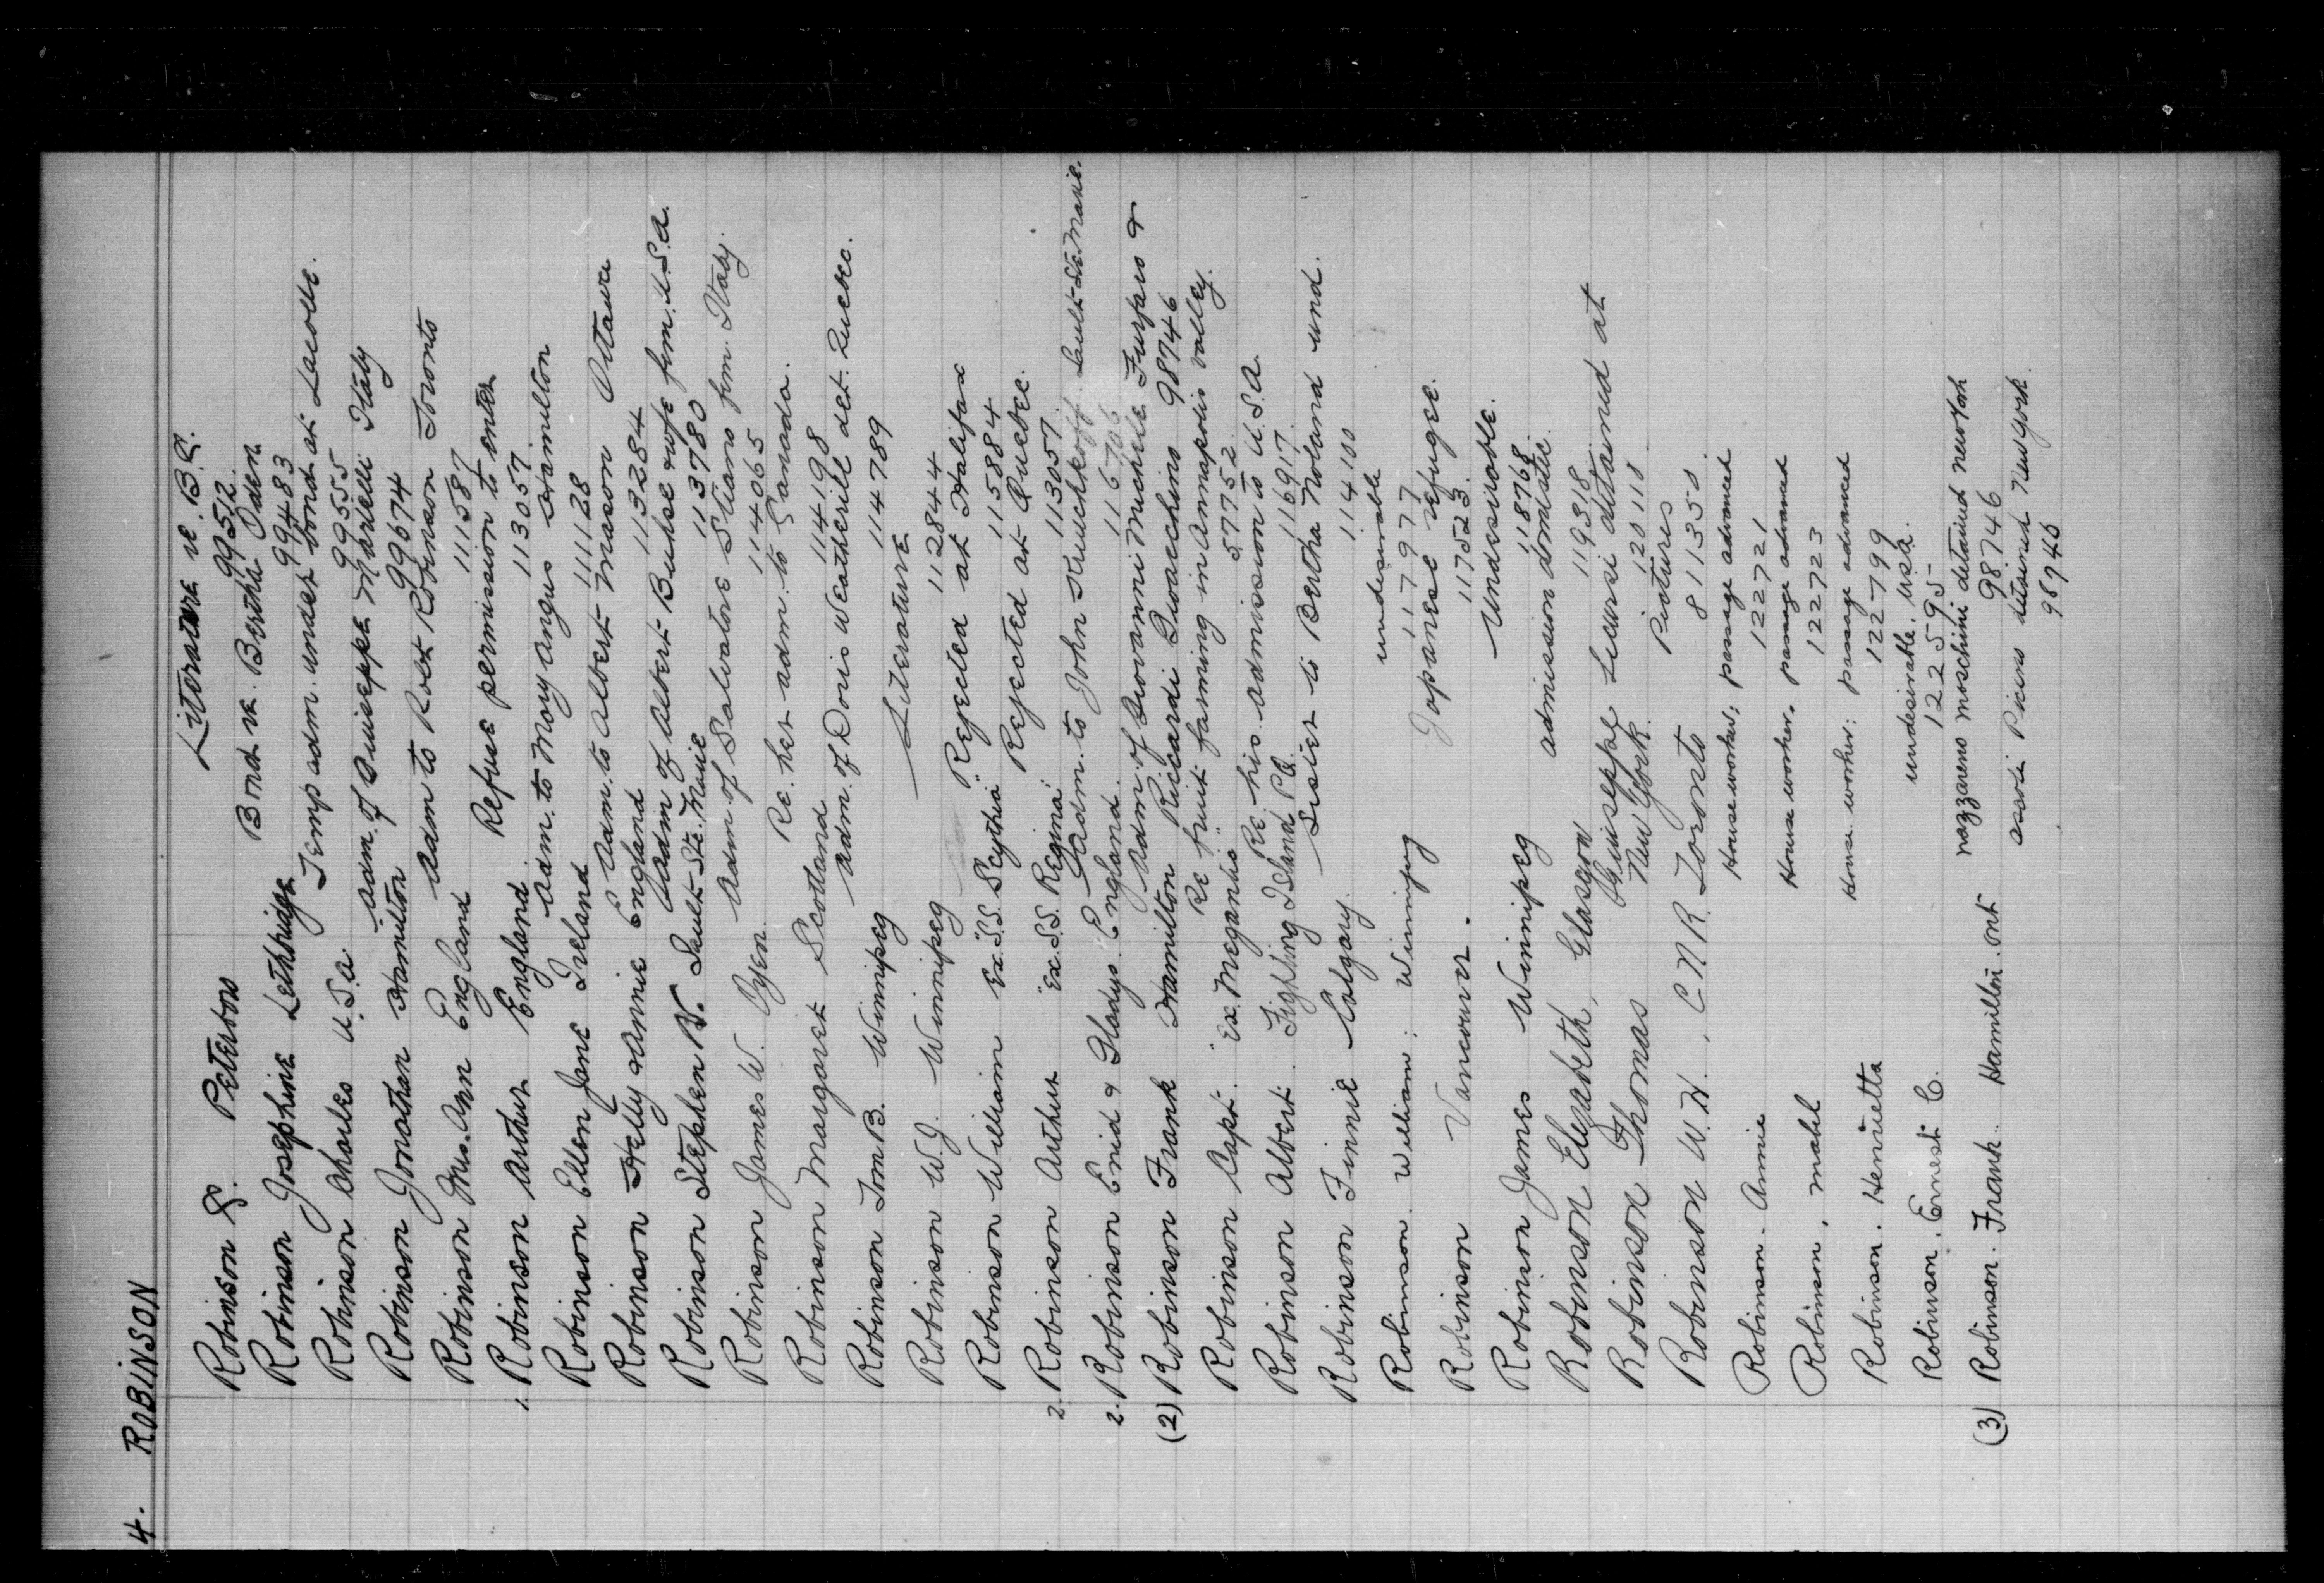 4. ROBINSON
Robinson G. Peterboro Literature re. B.C.
99512
Robinson Josephine Lethbridge Bond re. Bertha Oden
99483
Robinson Charles U.S.A. Temp adm. under bond at Lacolle.
99555
Robinson Jonathan Hamilton adm. of Giuseppe Marzelli Italy
990674
Robinson Mrs. Ann England adm to Robt Robinson Toronto
111587
1. Robinson Arthur England Refuse permission to enter
113057
Robinson Ellen Jane Ireland adm. to Moy Angus Hamilton
111128
Robinson Helly & Annie England adm. to Albert Mason Ottawa
113284
Robinson Stephen N. Sault-Ste. Marie adm of Albert Buhse & wife from U.S.A.
113780
Robinson James W. Oyen adm of Salvatore from Italy.
114065
Robinson Margaret Scotland Re. her adm. to Canada.
114198
Robinson Tom B. Winnipeg adm. of Doris Weatherill det. Quebec.
114789
Robinson W.J. Winnipeg Literature
112844
Robinson William Ex. "S.S. Scythia" Rejected at Halifax
115884
2. Robinson Arthur "Ex. S.S. Regina" Rejected at Quebec.
113057
2. Robinson Enid & Gladys England adm. to John Kruchkoff Sault-Ste Marie.
116706
(2) Robinson Frank Hamilton Adm. of Giovanni Michele Furfaro &
Riccardi Gioacchino 98746
Robinson Capt. "Ex. Megantic" Re fruit farming in Annapolis valley.
57752
Robinson Albert. Fighting Island P.Q. Re his admission to U.S.A.
116917
Robinson Finnie Calgary. Sister to Bertha Noland und.
114100
Robinson. William: Winnipeg undesirable
117977
Robinson Vancouver. Japanese refugee.
117523
Robinson James Winnipeg Undesirable.
118768
Robinson Elizabeth, Glasgow admission domestic.
119318
Robinson Thomas Giuseppe Licursi detained at
New York. 120110
Robinson W.H., C.N.R. Toronto Pictures
811350.
Robinson. Annie House worker, passage advanced
122721
Robinson, Mabl House worker. passage advanced
122723
Robinson. Henrietta House worker: passage advanced
122799
Robinson. Ernest C. undesirable. U.S.A.
122595
(3) Robinson. Frank. Hamilton. Ont Nazzareno Moschini detained New York
98746
detained New York.
98746